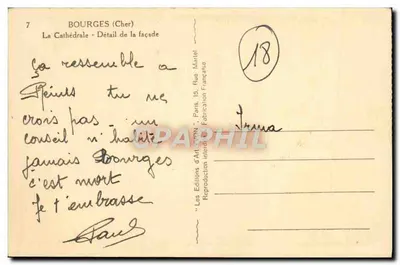 7
BOURGES (Cher)
La Cathédrale - Détail de la façade
18
ça ressemble a
Reims tu ne
crois pas - un
conseil n'habite
jamais Bourges
c'est mort
Je t'embrasse
Paul
Irma
CPHIL
"Les Editions d'Art", Paris, 15, Rue Martel
Reproduction interdite Fabrication Française